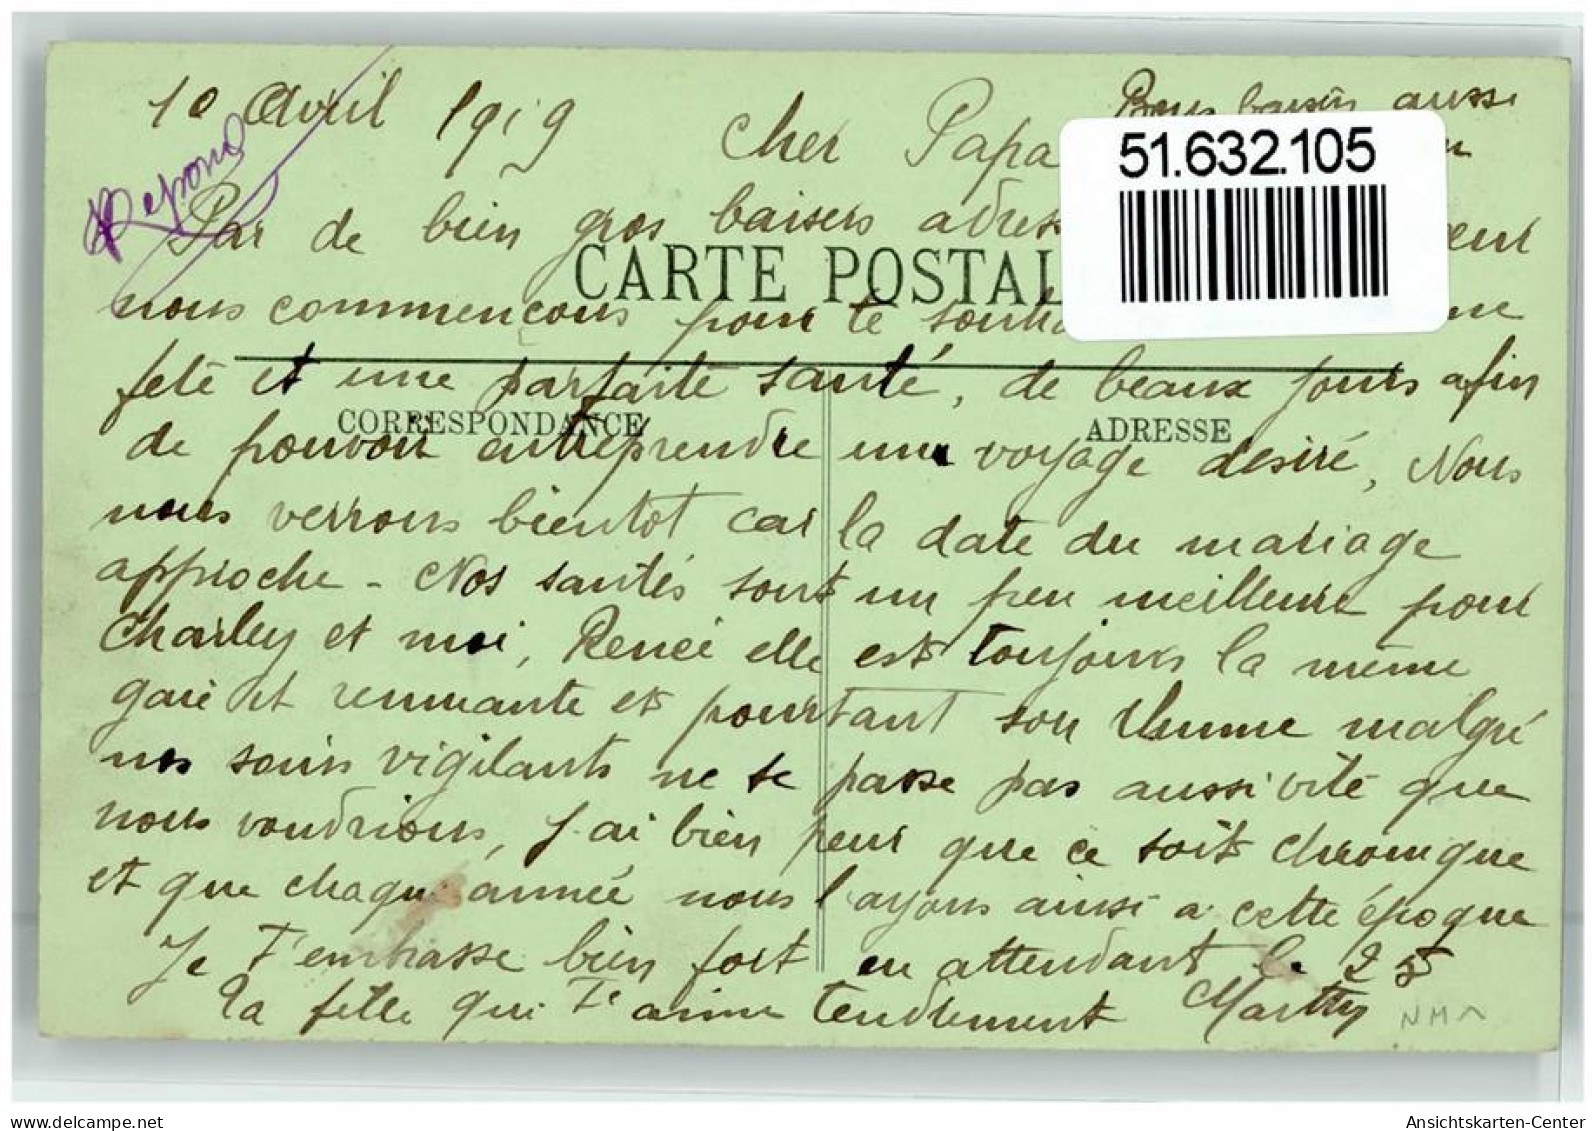 10 Avril 1919 Cher Papa
Bons baisers aussi
51.632.105
Répond
Par de bien gros baisers adress
CARTE POSTAL
nous commençons pour te souha
fete et une parfaite santé, de beaux jours afin
CORRESPONDANCE ADRESSE
de pouvoir entreprendre un voyage desiré, Nous
nous verrons bientot car la date du mariage
approche - Nos santés sont un peu meilleure pour
Charley et moi, Renée elle est toujours la même
gaie et remuante et pourtant son malgré
nos soins vigilants ne se passe pas aussi vite que
nous voudrions, j'ai bien peur que ce soit chronique
et que chaque année nous l'ayons ainsi a cette époque
Je t'embrasse bien fort en attendant le 25
ta fille qui t'aime tendrement Marthy
www.delcampe.net
AnsichtsKarten-Center